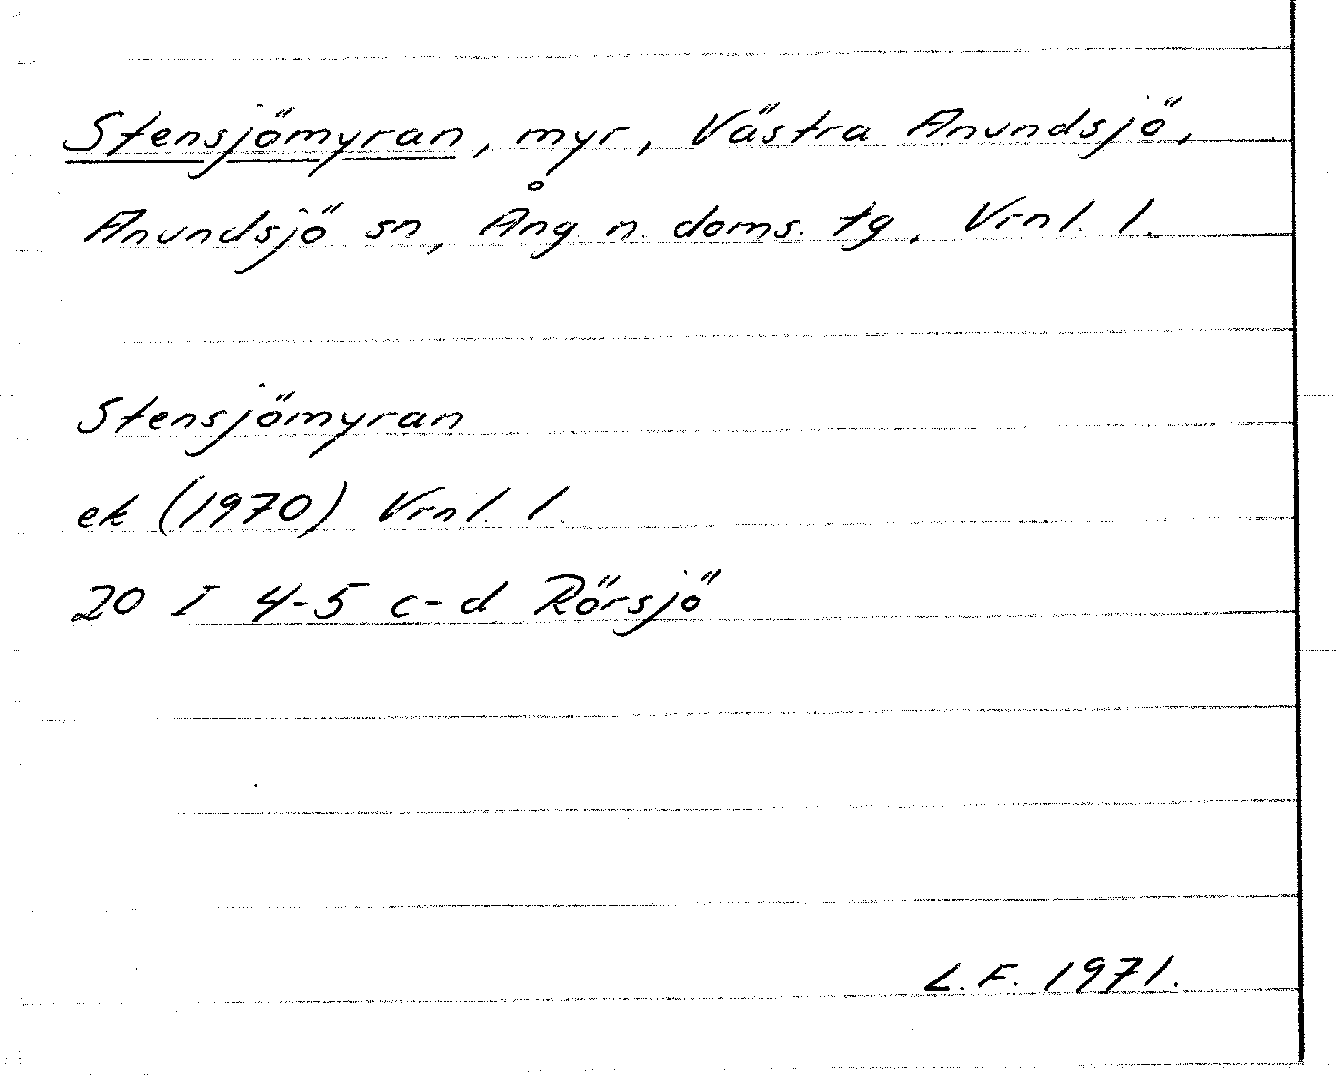 Stensjömyran, myr, Västra Anundsjö,
Anundsjö sn, Ång. n. doms. tg, Vrnl. l.
Stensjömyran
ek (1970) Vrnl. l.
20 I 4-5 c-d Rörsjö
L.F. 1971.